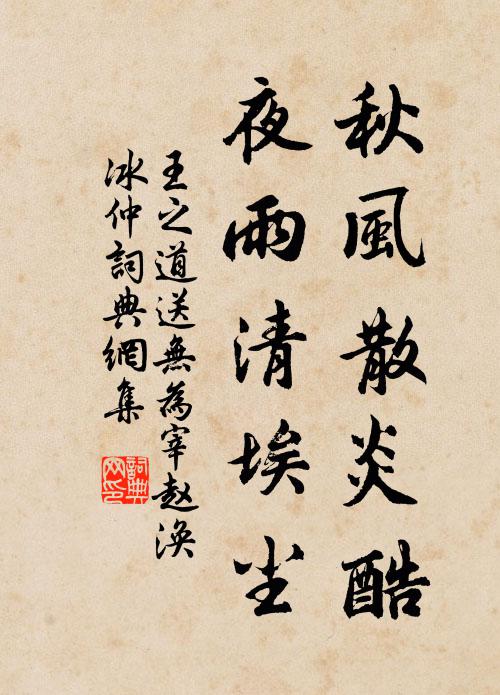 秋風散炎酷
夜雨清埃尘
王之道送無為宰赵渙
冰仲詞典網集
詞典网印